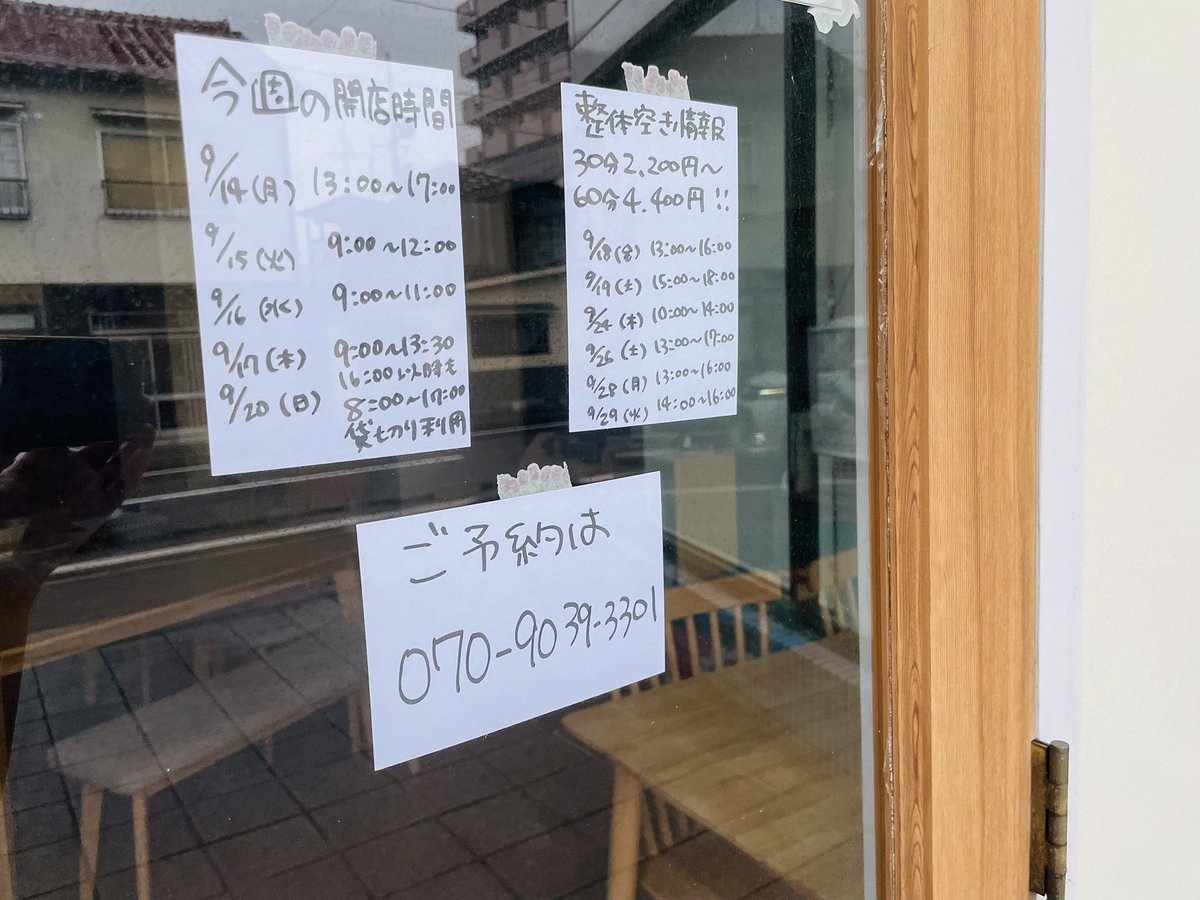 今週の開店時間
9/14(月) 13:00~17:00
9/15(火) 9:00~12:00
9/16(水) 9:00~11:00
9/17(木) 9:00~13:30
16:00以降も
9/20(日) 8:00~17:00
貸切り利用
整体空き情報
30分2,200円~
60分4,400円!!
9/18(金) 13:00~16:00
9/19(土) 15:00~18:00
9/24(木) 10:00~14:00
9/26(土) 13:00~17:00
9/28(月) 13:00~16:00
9/29(火) 14:00~16:00
ご予約は
070-9039-3301